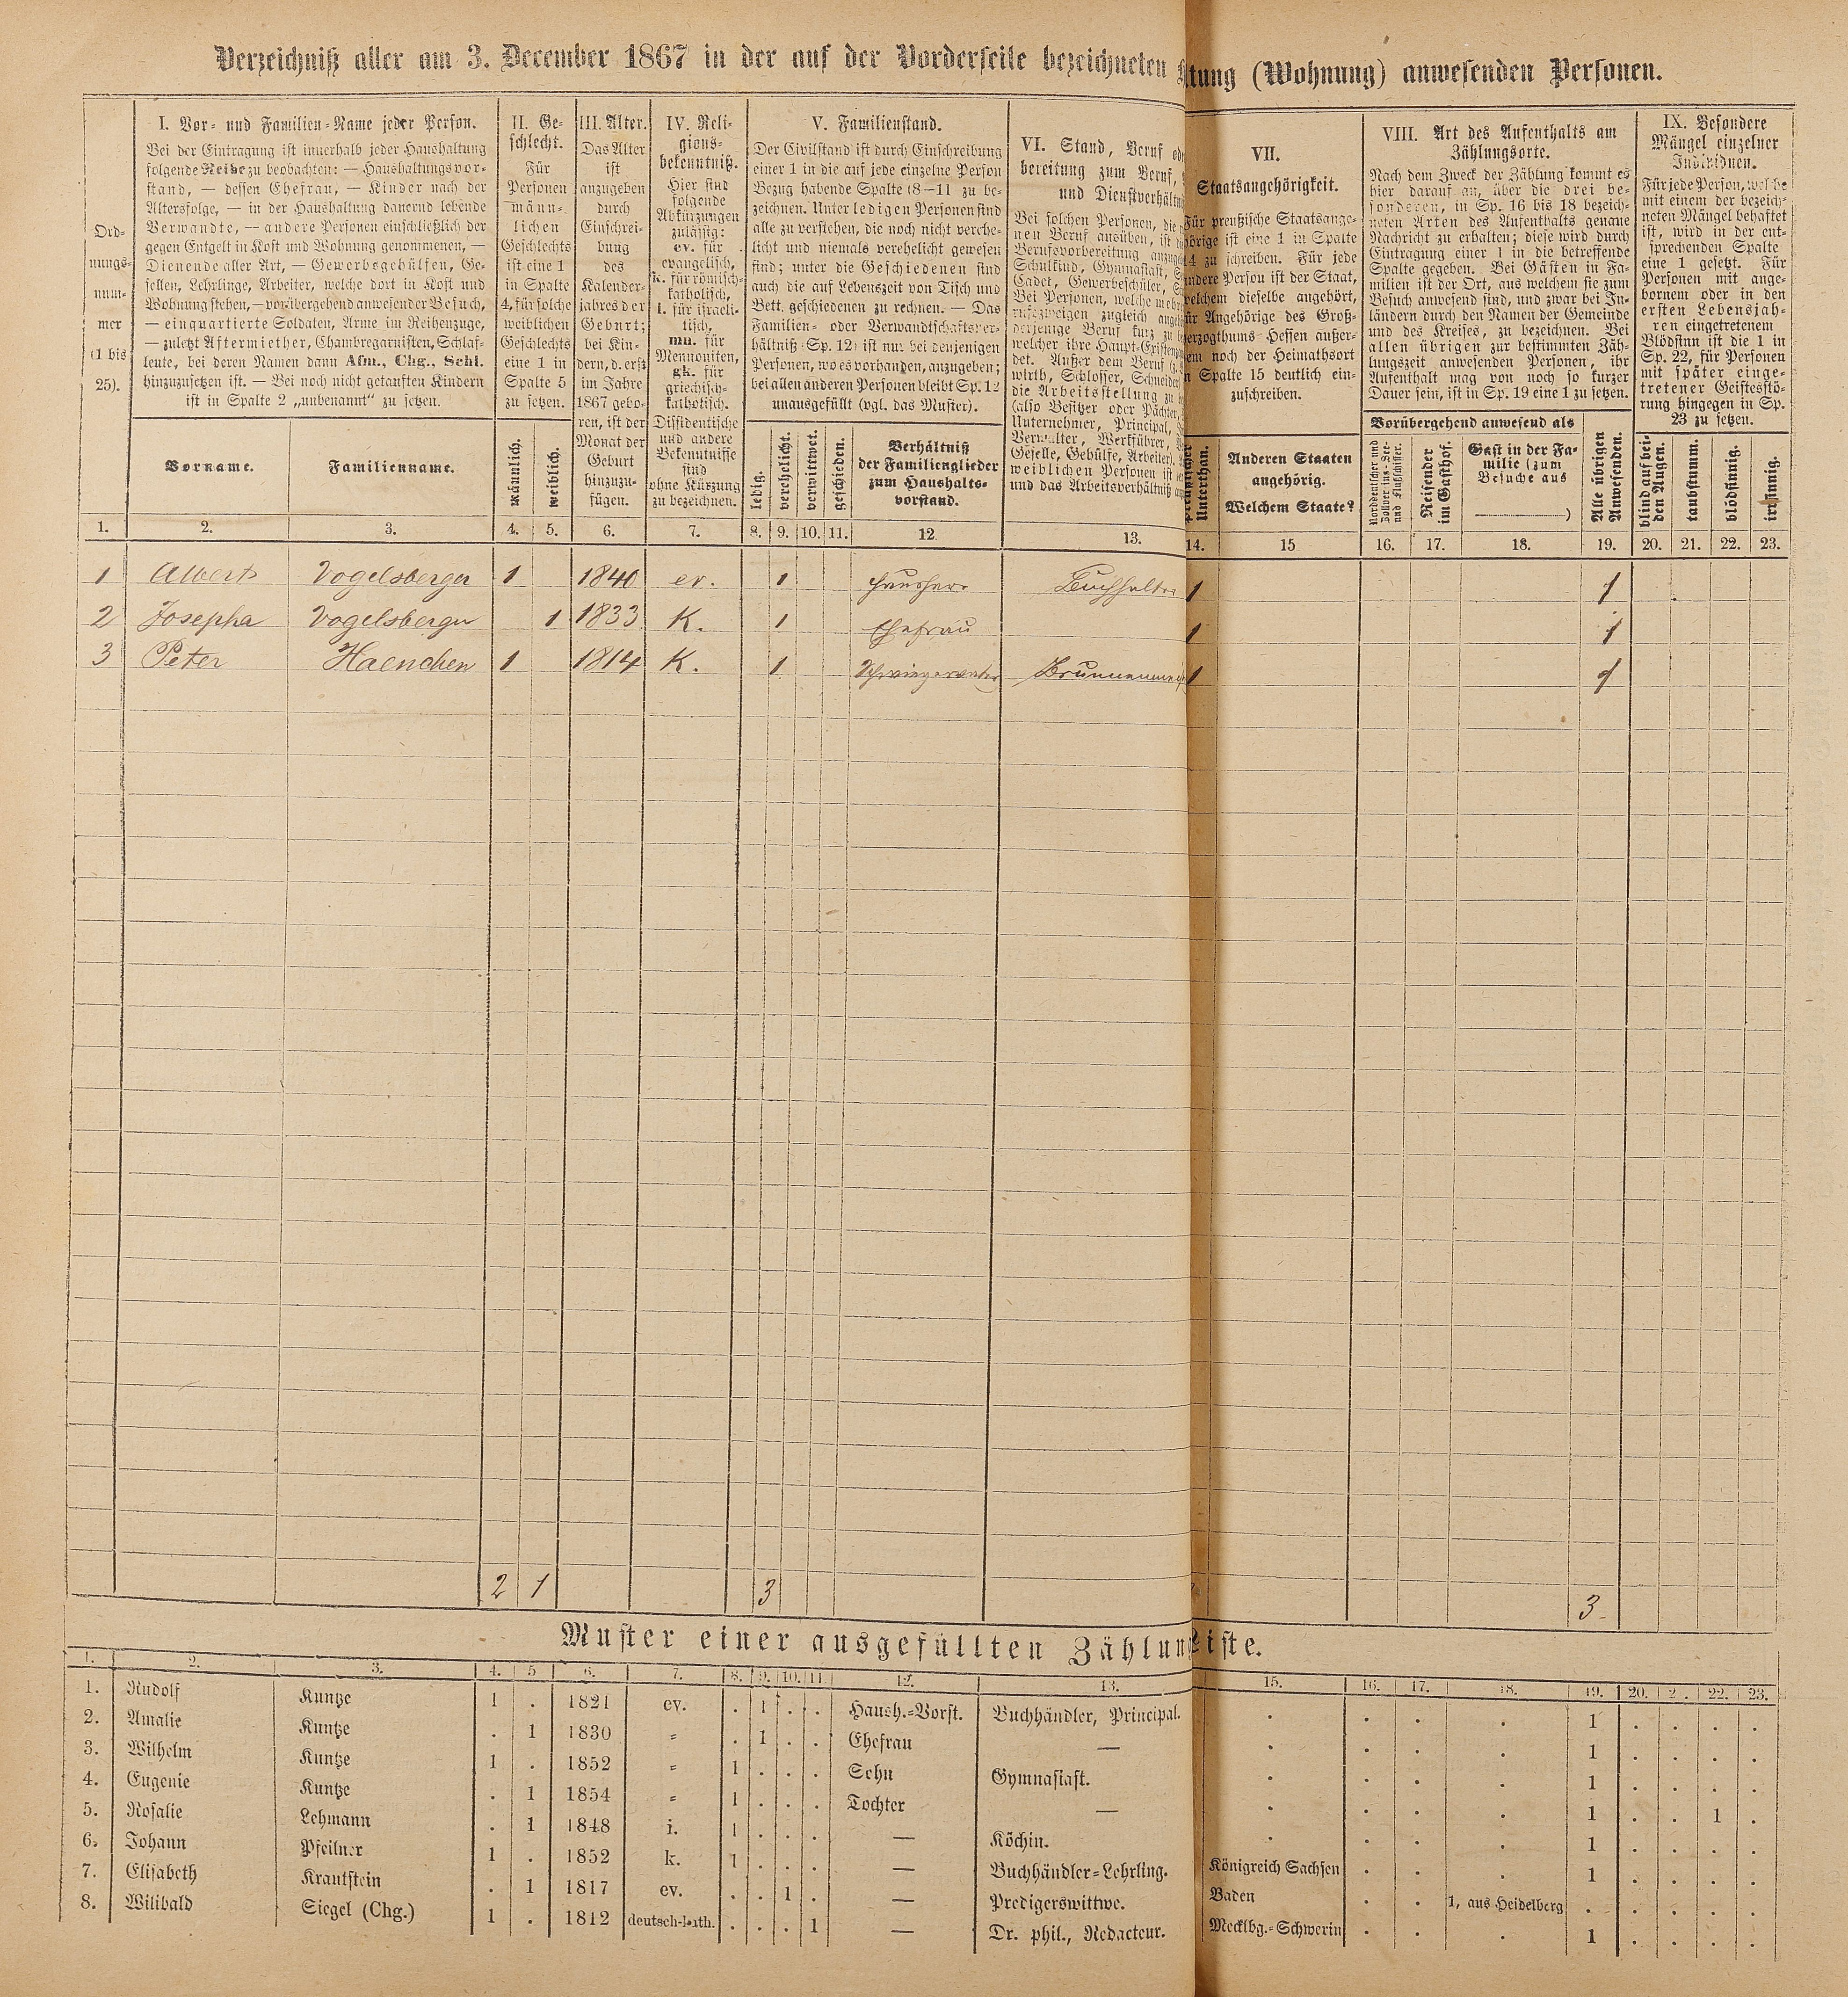 Verzeichniß aller am 3. December 1867 in der auf der Vorderseite bezeichneten
tung (Wohnung) anwesenden Personen.
Ord-
nungs-
num-
mer
(1 bis
25).
I. Vor- und Familien-Name jeder Person.
Bei der Eintragung ist innerhalb jeder Haushaltung
folgende Reihe zu beobachten: — Haushaltungsvor-
stand, — dessen Ehefrau, — Kinder nach der
Altersfolge, — in der Haushaltung dauernd lebende
Verwandte, — andere Personen einschließlich der
gegen Entgelt in Kost und Wohnung genommenen, —
Dienende aller Art, — Gewerbsgehülfen, Ge-
sellen, Lehrlinge, Arbeiter, welche dort in Kost und
Wohnung stehen, — vorübergehend anwesender Besuch,
— einquartierte Soldaten, Arme im Reihenzuge,
— zuletzt Aftermiether, Chambregarnisten, Schlaf-
leute, bei deren Namen dann Afm., Chg., Schl.
hinzuzusetzen ist. — Bei noch nicht getauften Kindern
ist in Spalte 2 „unbenannt“ zu setzen.
Vorname.
Familienname.
II. Ge-
schlecht.
Für
Personen
männ-
lichen
Geschlechts
ist eine 1
in Spalte
4, für solche
weiblichen
Geschlechts
eine 1 in
Spalte 5
zu setzen.
männlich.
weiblich.
III. Alter.
Das Alter
ist
anzugeben
durch
Einschrei-
bung
des
Kalender-
jahres der
Geburt;
bei Kin-
dern, d. erst
im Jahre
1867 gebo-
ren, ist der
Monat der
Geburt
hinzuzu-
fügen.
IV. Reli-
gions-
bekenntniß.
Hier sind
folgende
Abkürzungen
zulässig:
ev. für
evangelisch,
k. für römisch-
katholisch,
i. für israeli-
tisch,
mn. für
Mennoniten,
gk. für
griechisch-
katholisch.
Dissidentische
und andere
Bekenntnisse
sind
ohne Kürzung
zu bezeichnen.
V. Familienstand.
Der Civilstand ist durch Einschreibung
einer 1 in die auf jede einzelne Person
Bezug habende Spalte (8—11 zu be-
zeichnen. Unter ledigen Personen sind
alle zu verstehen, die noch nicht verehe-
licht und niemals verehelicht gewesen
sind; unter die Geschiedenen sind
auch die auf Lebenszeit von Tisch und
Bett geschiedenen zu rechnen. — Das
Familien- oder Verwandtschaftsver-
hältniß (Sp. 12) ist nur bei denjenigen
Personen, wo es vorhanden, anzugeben;
bei allen anderen Personen bleibt Sp. 12
unausgefüllt (vgl. das Muster).
ledig.
verehelicht.
verwittwet.
geschieden.
Verhältniß
der Familienglieder
zum Haushalts-
vorstand.
VI. Stand, Beruf
bereitung zum Beruf,
und Dienstverhältn
Bei solchen Personen, die
nen Beruf ausüben, ist
Berufsvorbereitung
Schulkind, Gymnasiast,
Cadet, Gewerbeschüler,
Bei Personen, welche
rufszweigen zugleich
derjenige Beruf kurz zu
welcher ihre Haupt-
det. Außer dem Beruf
wirth, Schlosser, Schneider
die Arbeitsstellung zu
(also Besitzer oder Pächter,
Unternehmer, Principal,
Verwalter, Werkführer,
Geselle, Gehülfe, Arbeiter).
weiblichen Personen ist
und das Arbeitsverhältniß
VII.
Staatsangehörigkeit.
Für preußische Staatsange-
hörige ist eine 1 in Spalte
14 zu schreiben. Für jede
andere Person ist der Staat,
welchem dieselbe angehört,
für Angehörige des Groß-
herzogthums Hessen außer-
dem noch der Heimathsort
in Spalte 15 deutlich ein-
zuschreiben.
Unterthan.
Anderen Staaten
angehörig.
Welchem Staate?
VIII. Art des Aufenthalts am
Zählungsorte.
Nach dem Zweck der Zählung kommt es
hier darauf an, über die drei be-
sonderen, in Sp. 16 bis 18 bezeich-
neten Arten des Aufenthalts genaue
Nachricht zu erhalten; diese wird durch
Eintragung einer 1 in die betreffende
Spalte gegeben. Bei Gästen in Fa-
milien ist der Ort, aus welchem sie zum
Besuch anwesend sind, und zwar bei In-
ländern durch den Namen der Gemeinde
und des Kreises, zu bezeichnen. Bei
allen übrigen zur bestimmten Zäh-
lungszeit anwesenden Personen, ihr
Aufenthalt mag von noch so kurzer
Dauer sein, ist in Sp. 19 eine 1 zu setzen.
Vorübergehend anwesend als
Norddeutscher und
Zollver.ins-See-
und Flußschiffer.
Reisender
im Gasthof.
Gast in der Fa-
milie (zum
Besuche aus
)
Alle übrigen
Anwesenden.
IX. Besondere
Mängel einzelner
Individuen.
Für jede Person, welche
mit einem der bezeich-
neten Mängel behaftet
ist, wird in der ent-
sprechenden Spalte
eine 1 gesetzt. Für
Personen mit ange-
bornem oder in den
ersten Lebensjah-
ren eingetretenem
Blödsinn ist die 1 in
Sp. 22, für Personen
mit später einge-
tretener Geistesstö-
rung hingegen in Sp.
23 zu setzen.
blind auf bei-
den Augen.
taubstumm.
blödsinnig.
irrsinnig.
1. 2. 3. 4. 5. 6. 7. 8. 9. 10. 11. 12. 13. 14. 15 16. 17. 18. 19. 20. 21. 22. 23.
1 Albert Vogelsberger 1 1840 ev. 1 Hausherr Buchhalter 1 1
2 Josepha Vogelsberger 1 1833 K. 1 Ehefrau 1 1
3 Peter Haenchen 1 1814 K. 1 Schwiegervater 1 1
2 1 3 3
Muster einer ausgefüllten Zählungsliste.
1. 2. 3. 4. 5 6. 7. 8. 9. 10. 11 12. 13. 15. 16. 17. 18. 19. 20. 2 . 22. 23.
1. Rudolf Kuntze 1 . 1821 ev. . 1 . . Haush.-Vorst. Buchhändler, Principal. . . . . 1 . . . .
2. Amalie Kuntze . 1 1830 " . 1 . . Ehefrau — . . . . 1 . . . .
3. Wilhelm Kuntze 1 . 1852 " 1 . . . Sohn Gymnasiast. . . . . 1 . . . .
4. Eugenie Kuntze . 1 1854 " 1 . . . Tochter — . . . . 1 . . 1 .
5. Rosalie Lehmann . 1 1848 i. 1 . . . — Köchin. . . . . 1 . . . .
6. Johann Pfeilner 1 . 1852 k. 1 . . . — Buchhändler-Lehrling. Königreich Sachsen . . . 1 . . . .
7. Elisabeth Krautstein . 1 1817 ev. . . 1 . — Predigerswittwe. Baden . . 1, aus Heidelberg . . . . .
8. Wilibald Siegel (Chg.) 1 . 1812 deutsch-kath. . . . 1 — Dr. phil., Redacteur. Mecklbg.-Schwerin . . . 1 . . . .